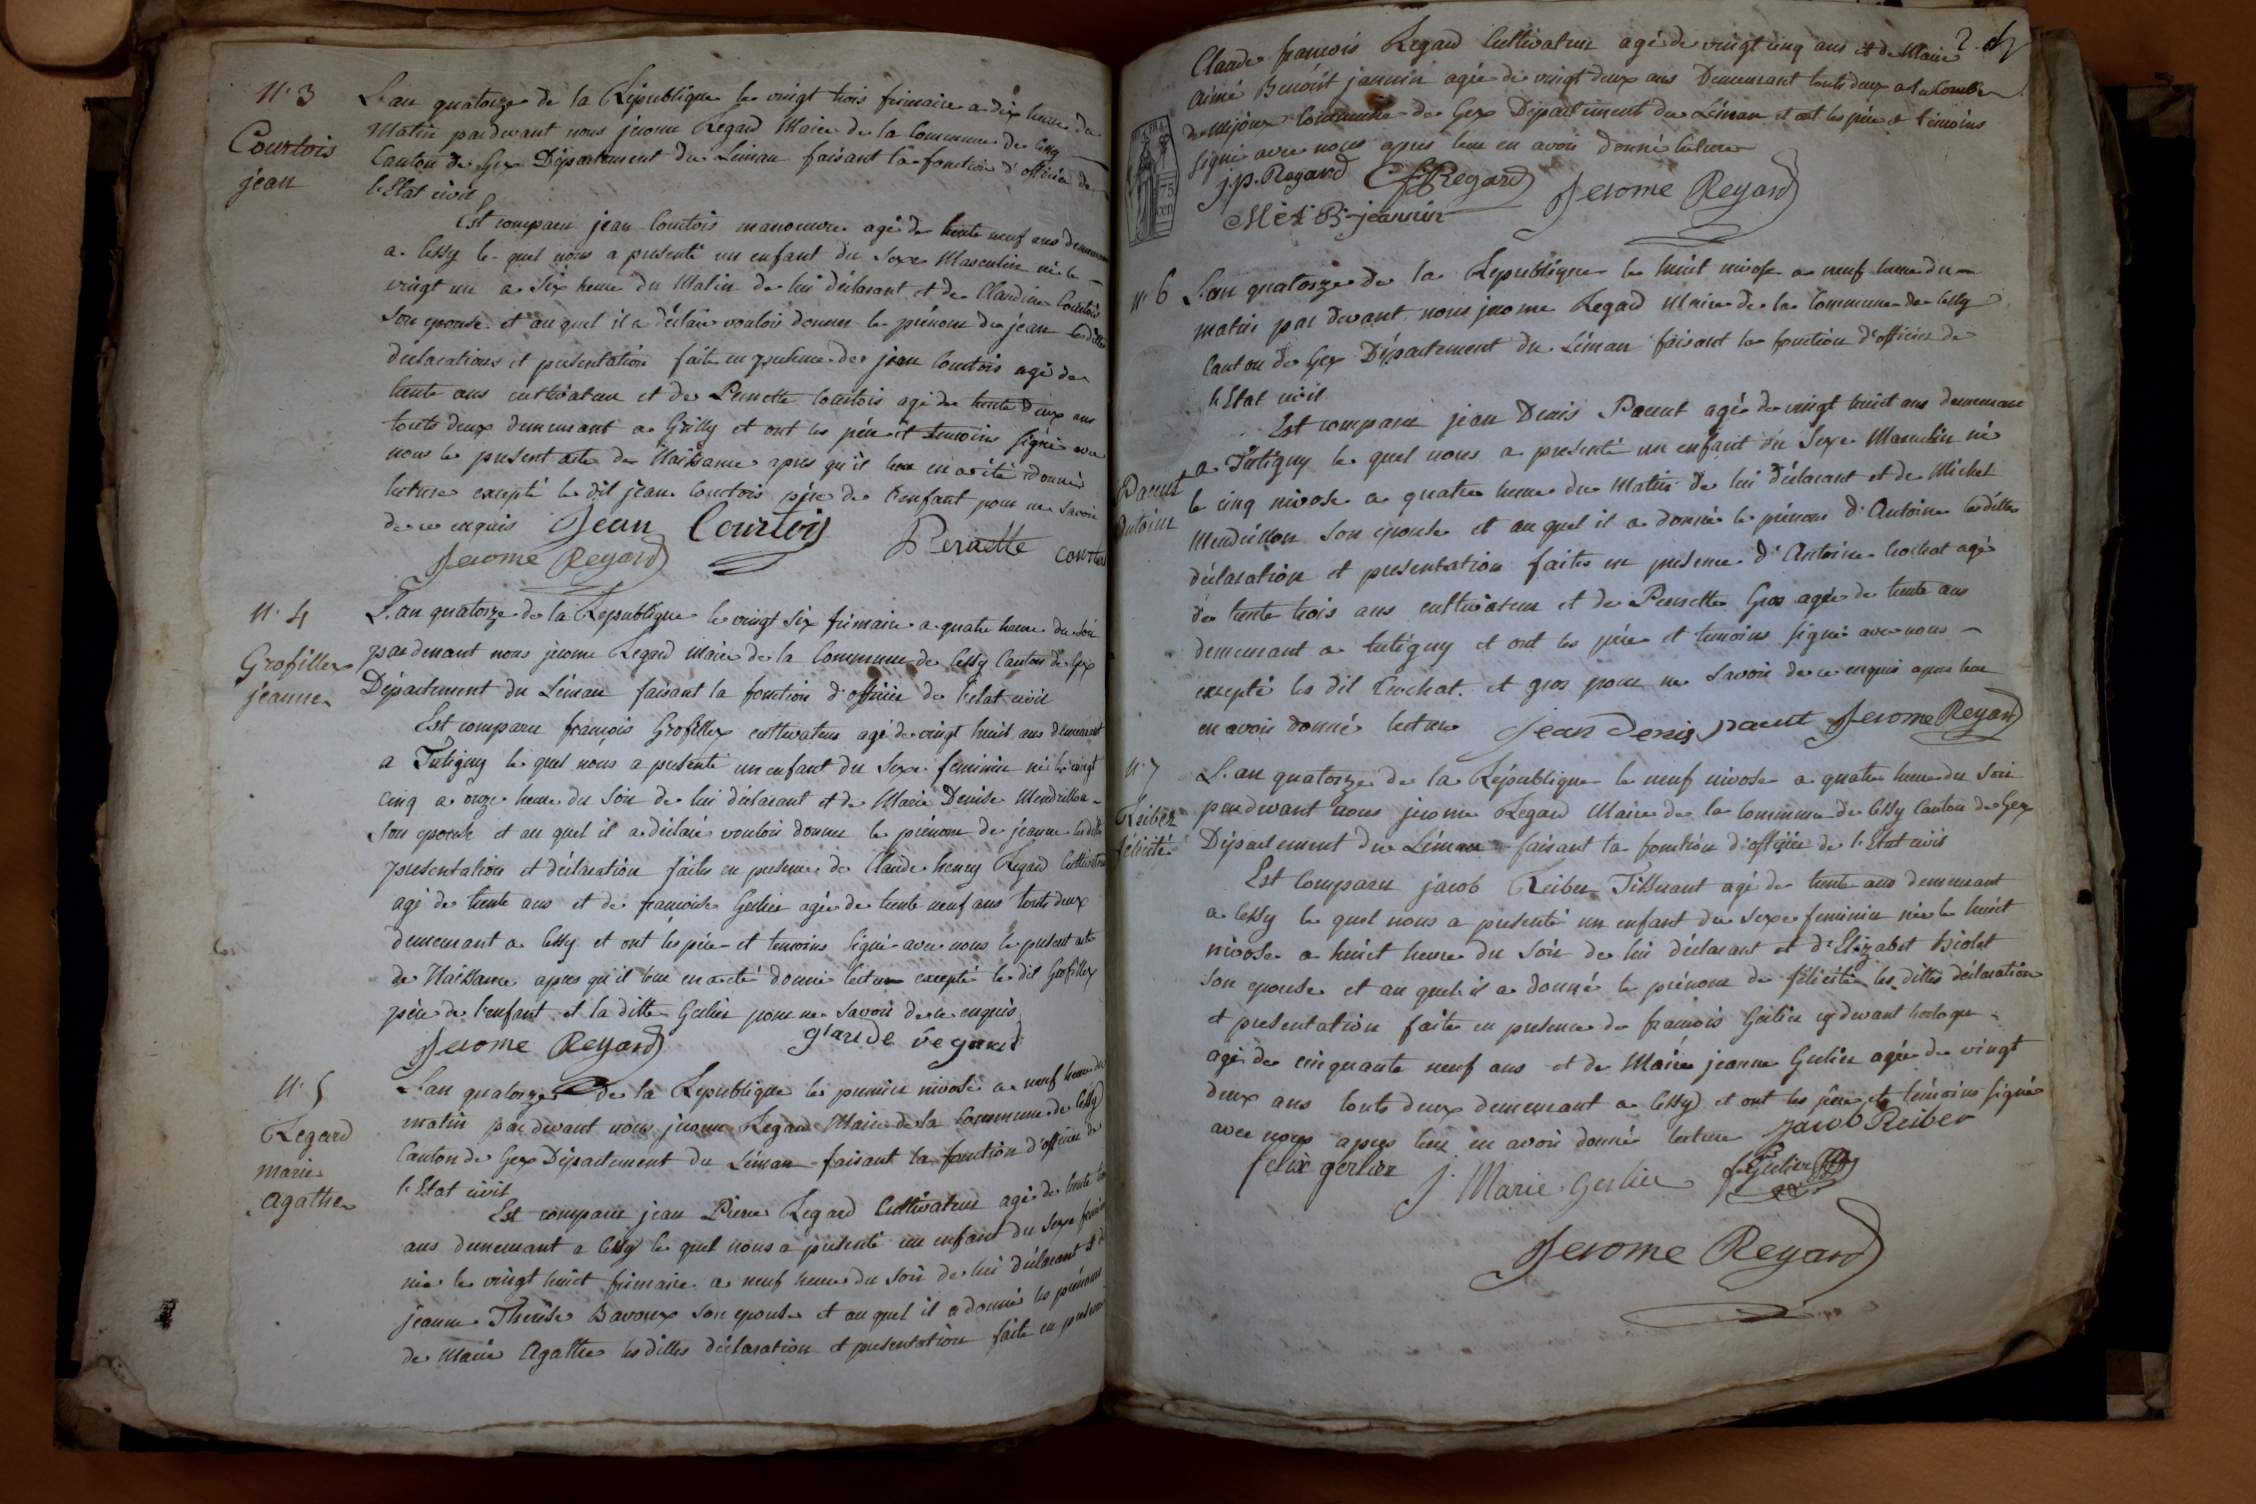 N.° 3
Courtois
jean
L'an quatorze de la République le vingt trois frimaire a dix heure du
Matin pardevant nous jerome Regard Maire de la Commune de Cessy
Canton de Gex Département du Léman faisant la fonction d'officier de
l'Etat civil
Est comparu jean Courtois manoeuvre agé de trente neuf ans demeurant
a Cessy le quel nous a présenté un enfant du Sexe Masculin né le
vingt un a Six heure du Matin de lui déclarant et de Claudine Courtois
Son epouse et au quel il a déclaré vouloir donner le prénom de jean les dittes
declarations et presentation faite en presence de jean Courtois agé de
trente ans cultivateur et de Pernette Courtois agé de trente deux ans
touts deux demeurant a Grilly et ont les père et temoins Signé avec
nous le present acte de Naissance apres qu'il leur en a été donné
lecture excepté le dit jean Courtois père de l'enfant pour ne Savoir
de ce enquis Jean Courtois Pernette courtois
Jerome Regard
N.° 4
Grofillex
jeanne
L'an quatorze de la République le vingt Six frimaire a quatre heure du Soir
pardevant nous jerome Regard maire de la Commune de Cessy Canton de Gex
Département du Léman faisant la fonction d'officier de l'Etat civil
Est comparu françois Grofillex cultivateur agé de vingt huit ans demeurant
a Tutigny le quel nous a présenté un enfant du Sexe feminin né le vingt
cinq a onze heure du Soir de lui déclarant et de Marie Denise Mendrillon
Son epouse et au quel il a déclaré vouloir donner le prénom de jeanne les dittes
presentation et déclaration faites en presence de Claude henry Regard Cultivateur
agé de trente ans et de françoise Gerlier agée de trente neuf ans touts deux
demeurant a Cessy et ont les père et temoins Signé avec nous le present acte
de Naissance apres qu'il leur en a été donné lecture excepté le dit Grofillex
père de l'enfant et la ditte Gerlier pour ne Savoir de ce enquis
Jerome Regard glaude regard
N.° 5
Regard
marie
Agathe
L'an quatorze de la République le premier nivose a neuf heure du
matin pardevant nous jerome Regard Maire de la Commune de Cessy
Canton de Gex Département du Léman faisant la fonction d'officier de
l'Etat civil
Est comparu jean Pierre Regard Cultivateur agé de trente
ans demeurant a Cessy le quel nous a présenté un enfant du Sexe feminin
née le vingt huit frimaire a neuf heure du Soir de lui déclarant et de
jeanne Therèse Bavoux son epouse et au quel il a donné les prénoms
de Marie Agathe les dittes déclaration et presentation faite en presence
2.
Claude françois Regard Cultivateur agé de vingt cinq ans et de Marie
Aimé Benoit jannin agée de vingt deux ans Demeurant touts deux a la Combe
de mijoux Commune de Gex Département du Léman et ont les père et témoins
Signé avec nous apres leur en avoir donné lecture
j.p. Regard CfRegard Jerome Regard
jeannin
N.° 6
Pacut
Antoine
L'an quatorze de la République le huit nivose a neuf heure du
matin par devant nous jerome Regard Maire de la Commune de Cessy
Canton de Gex Département du Léman faisant la fonction d'officier de
l'Etat civil
Est comparu jean Denis Pacut agé de vingt huit ans demeurant
a Tutigny le quel nous a presenté un enfant du Sexe Masculin né
le cinq nivose a quatre heure du Matin de lui déclarant et de Michel
Mendrillon Son epouse et au quel il a donné le prénom d'Antoine les dittes
déclaration et presentation faites en presence d'Antoine trochat agé
de trente trois ans cultivateur et de Pernette Gros agée de trente ans
demeurant a tutigny et ont les père et temoins Signé avec nous
excepté les dit trochat et gros pour ne Savoir de ce enquis apres leur
en avoir donné lecture jean Denis pacut Jerome Regard
N.° 7
Reiber
félicité
L'an quatorze de la République le neuf nivose a quatre heure du Soir
pardevant nous jerome Regard Maire de la Commune de Cessy Canton de Gex
Département du Léman faisant la fonction d'officier de l'Etat civil
Est Comparu jacob Reiber Tisserant agé de trente ans demeurant
a Cessy le quel nous a présenté un enfant du Sexe feminin née le huit
nivose a huit heure du Soir de lui déclarant et d'Elizabet
Son epouse et au quel il a donné le prénom de félicité les dittes déclaration
et presentation faite en presence de françois Gerlier cydevant horloger
agé de cinquante neuf ans et de Marie jeanne Gerlier agée de vingt
deux ans touts deux demeurant a Cessy et ont les père et témoins Signé
avec nous apres leur en avoir donné lecture jacob Reiber
felix gerlier j. Marie Gerlier f Gerlier
Jerome Regard